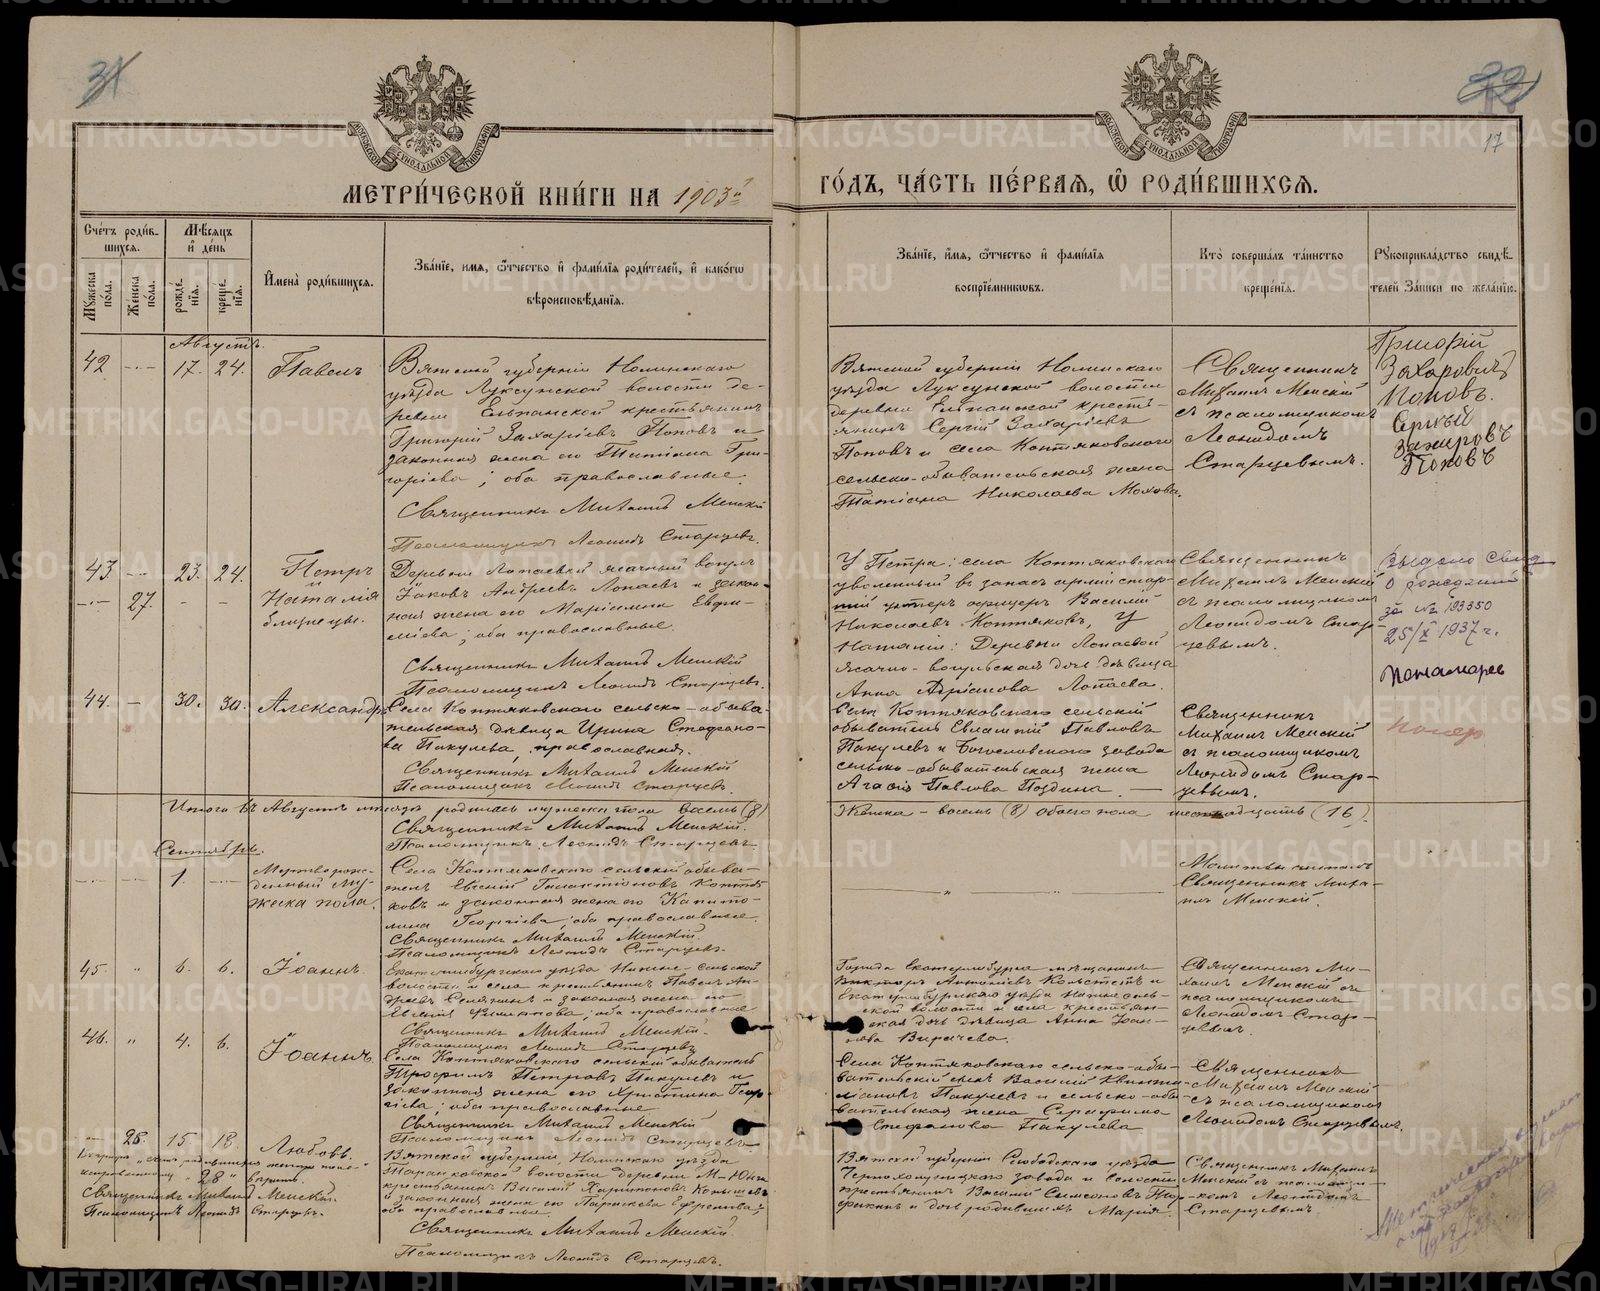 МЕТРИЧЕСКОЙ КНИГИ НА 1903й
ГОДЪ, ЧАСТЬ ПЕРВАЯ, Ѡ РОДИВШИХСЯ.
17
Счетъ родившихся.
Мужеска пола.
Женска пола.
Мѣсяцъ и день
рожденія.
крещенія.
Имена родившихся.
Званіе, имя, отчество и фамилія родителей, и какого
вѣроисповѣданія.
Званіе, имя, отчество и фамилія
воспріемниковъ.
Кто совершалъ таинство
крещенія.
Рукоприкладство свидѣ-
телей записи по желанію.
Августъ.
42 17. 24. Павелъ
Вятской губерніи Нолинскаго
уѣзда Луксунской волости де-
ревни Ельпанской крестьянинъ
Григорій Захаріевъ Поповъ и
законная жена его Татіана Гри-
горіева; оба православные.
Священникъ Михаилъ Менскій
Псаломщикъ Леонидъ Старцевъ.
Вятской губерніи Нолинскаго
уѣзда Луксунской волости
деревни Ельпанской кресть-
янинъ Сергій Захаріевъ
Поповъ и села Коптяковскаго
сельско-обывательская жена
Татіана Николаева Мохова.
Священникъ
Михаилъ Менскій
съ псаломщикомъ
Леонидомъ
Старцевымъ.
Григорій
Захаровичъ
Поповъ.
Сергѣй
Захаровъ
Поповъ
43. 23. 24. Петръ
27. и Наталія
близнецы.
Деревни Лопаевой ясачный вогулъ
Іаковъ Андреевъ Лопаевъ и закон-
ная жена его Маріамна Евфи-
міева; оба православные.
Священникъ Михаилъ Менскій
Псаломщикъ Леонидъ Старцевъ.
У Петра: села Коптяковскаго
уволенный въ запасъ арміи стар-
шій унтеръ офицеръ Василій
Николаевъ Коптяковъ, У
Наталіи: Деревни Лопаевой
ясачно-вогульская дочь дѣвица
Анна Адріанова Лопаева.
Священникъ
Михаилъ Менскій
съ псаломщикомъ
Леонидомъ Стар-
цевымъ.
выдано свид
о рождении
за № 193350
25/X 1937 г.
Пономарев
44. 30. 30. Александръ
Села Коптяковскаго сельско-обыва-
тельская дѣвица Ирина Стефано-
ва Пакулева, православная.
Священникъ Михаилъ Менскій
Псаломщикъ Леонидъ Старцевъ.
Села Коптяковскаго сельскій
обыватель Евлампій Павловъ
Пакулевъ и Богословскаго завода
сельско-обывательская жена
Агафія Павлова Поздина.
Священникъ
Михаилъ Менскій
съ псаломщикомъ
Леонидомъ Стар-
цевымъ.
Итого въ Августѣ мѣсяцѣ родилось мужеска пола восемь (8)
Женска - восемь (8) обоего пола шестнадцать (16)
Священникъ Михаилъ Менскій.
Псаломщикъ Леонидъ Старцевъ
Сентябрь.
1. Мертворож-
денный му-
жеска пола.
Села Коптяковскаго сельскій обыва-
тель Евгеній Галактіоновъ Коптя-
ковъ и законная жена его Капито-
лина Георгіева; оба православные.
Священникъ Михаилъ Менскій.
Псаломщикъ Леонидъ Старцевъ.
Молитвы читалъ
Священникъ Миха-
илъ Менскій.
45. 6. 6. Іоаннъ.
Екатеринбургскаго уѣзда Нижне-сельской
волости и села крестьянинъ Павелъ
законная жена его
оба православные
Священникъ Михаилъ Менскій.
Псаломщикъ Леонидъ Старцевъ
Города Екатеринбурга мѣщанинъ
Викторъ Антоніевъ и
Екатеринбургскаго уѣзда Нижне-сель-
ской волости и села крестьян-
ская дочь дѣвица Анна Іоан-
нова Вирачева.
Священникъ Ми-
хаилъ Менскій съ
псаломщикомъ
Леонидомъ Стар-
цевымъ.
46. 4. 6. Іоаннъ.
Села Коптяковскаго сельскій обыватель
Трофимъ Петровъ Пакулевъ и
законная жена его Христина Геор-
гіева; оба православные
Священникъ Михаилъ Менскій
Псаломщикъ Леонидъ Старцевъ
Села Коптяковскаго сельско-обы-
вательскій сынъ Василій
Пакулевъ и сельско-обы-
вательская жена Серафима
Стефанова Пакулева
Священникъ
Михаилъ Менскій
съ псаломщикомъ
Леонидомъ Старцевымъ.
28. 15. 18. Любовь.
исправленному "28" вѣрить.
Священникъ Михаилъ Менскій.
Псаломщикъ Леонидъ Старцевъ.
Вятской губерніи Нолинскаго уѣзда
волости деревни
крестьянинъ Василій Харитоновъ
и законная жена его Параскева Ефремова;
оба православные.
Священникъ Михаилъ Менскій.
Псаломщикъ Леонидъ Старцевъ.
Вятской губерніи Слободскаго уѣзда
Чернохолуницкаго завода и волости
крестьянинъ Василій Симеоновъ
и дочь родившихъ Марія.
Священникъ Михаилъ
Менскій съ псаломщи-
комъ Леонидомъ
Старцевымъ
METRIKI.GASO-URAL.RU